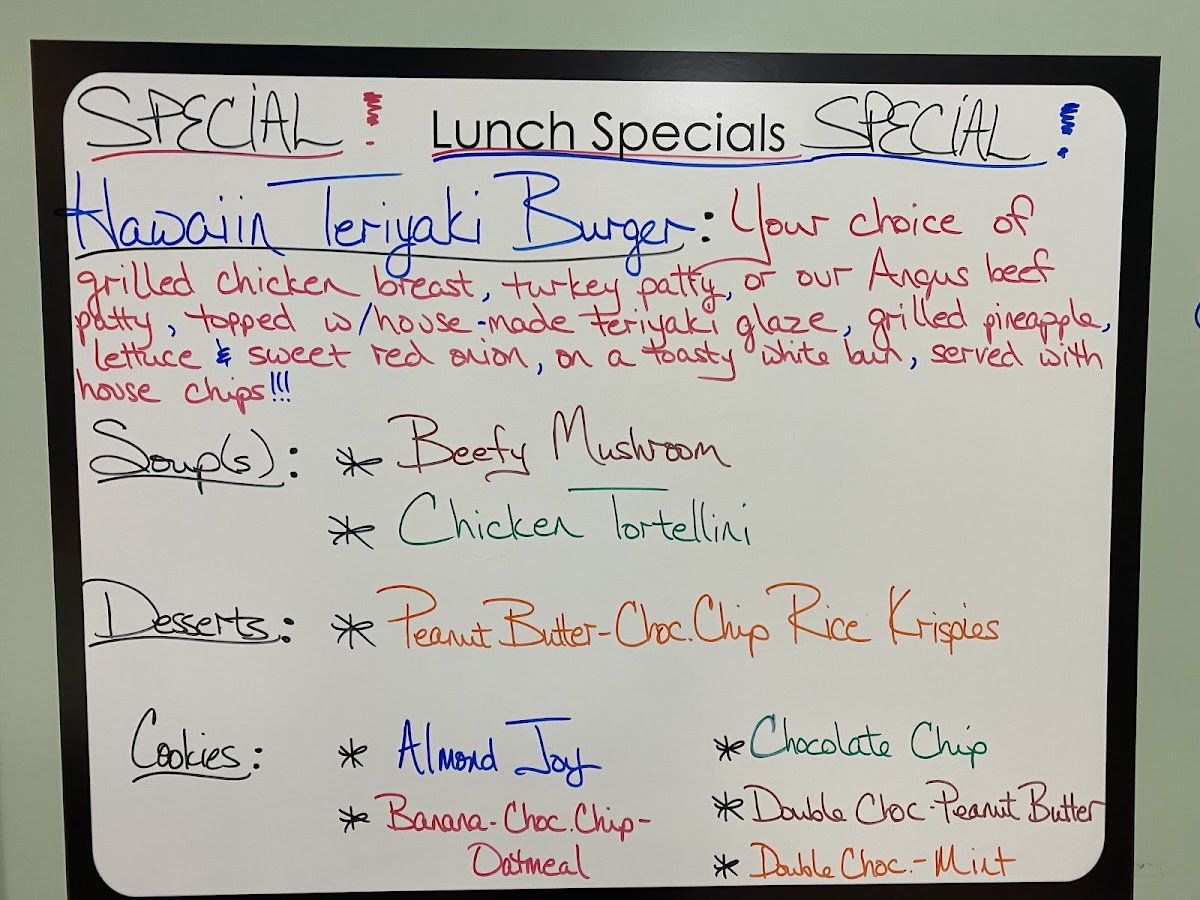 SPECIAL ! Lunch Specials SPECIAL !
Hawaiin Teriyaki Burger: Your choice of
grilled chicken breast, turkey patty, or our Angus beef
patty, topped w/house-made teriyaki glaze, grilled pineapple,
lettuce & sweet red onion, on a toasty white bun, served with
house chips!!!
Soup(s): * Beefy Mushroom
* Chicken Tortellini
Desserts: * Peanut Butter-Choc.Chip Rice Krispies
Cookies: * Almond Joy * Chocolate Chip
* Banana-Choc.Chip- * Double Choc-Peanut Butter
Oatmeal * Double Choc.-Mint